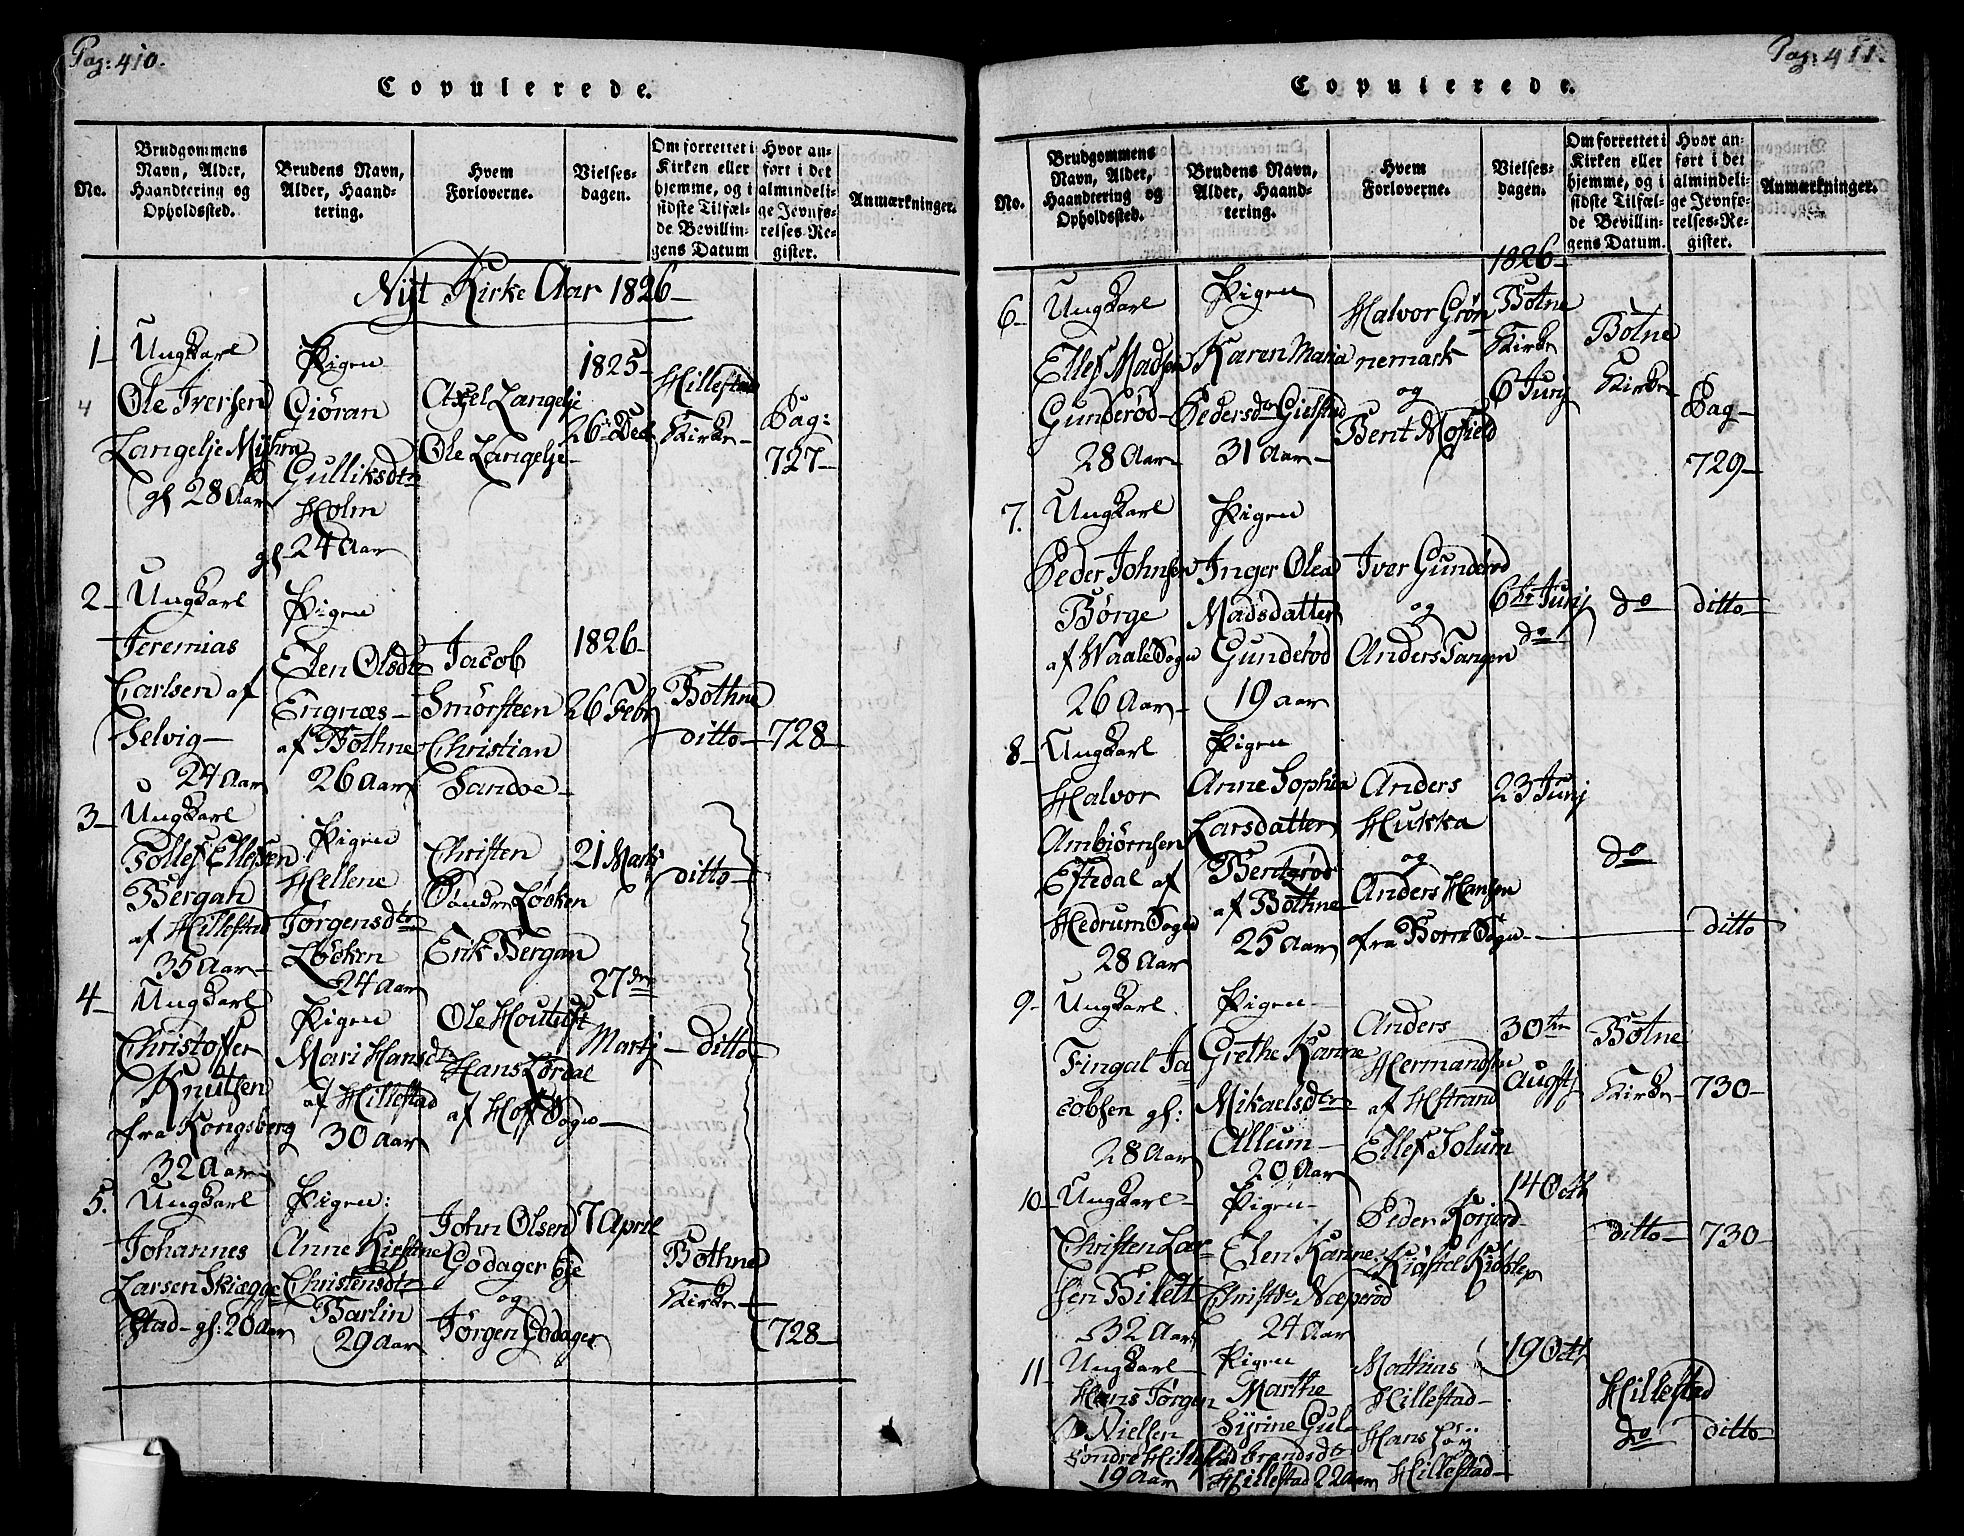 Pag: 410.
Copulerede.
No.
Brudgommens Navn, Alder, Haandtering og Opholdssted.
Brudens Navn, Alder, Haandtering.
Hvem Forloverne.
Vielsesdagen.
Om forrettet i Kirken eller hjemme, og i sidste Tilfælde Bevillingens Datum
Hvor anført i det almindelige Jevnførelses-Register.
Anmærkninger.
Nyt Kirke Aar 1826
1
Ungkarl
Ole Iversen
Langelje Myhra
gl 28 Aar
Pigen
Giöran
Gulliksdtr
Holm
gl 24 Aar
Axel Langelje
Ole Langelje
1825
26 Dec
Hillestad
Kirke
Pag:
727
2
Ungkarl
Jeremias
Carlsen af
Selvig
24 Aar
Pigen
Elen Olsdtr
Engnæs
af Bothne
26 Aar
Jacob
Smörsteen
Christian
Sandoe
1826
26 Febr
Bothne
ditto
728
3
Ungkarl
Tollef Ellefsen
Bergan
af Hillestad
35 Aar
Pigen
Hellene
Jørgensdtr
Løcken
24 Aar
Christen
Søndre Løcken
Erik Bergan
21 Marts
ditto
4
Ungkarl
Christoffer
Knutsen
fra Kongsberg
32 Aar
Pigen
Mari Hansdtr
af Hillestad
30 Aar
Ole Houtuft
Hans
af Hoff Sogn
27de
Martj
Ditto
5.
Ungkarl
Johannes
Larsen Skiægge
stad gl: 20 Aar
Pigen:
Anne Kirstine
Christensdtr
Barlin
29 Aar
John Olsen
Godager Eje
og
Jørgen Godager
7 April
Bothne
Kirke
728
Pag: 411.
Copulerede.
No.
Brudgommens Navn, Alder, Haandtering og Opholdssted.
Brudens Navn, Alder, Haandtering.
Hvem Forloverne.
Vielsesdagen.
Om forrettet i Kirken eller hjemme, og i sidste Tilfælde Bevillingens Datum.
Hvor anført i det almindelige Jevnførelses-Register.
Anmærkninger.
6
Ungkarl
Ellef Madsen
Gunderød
28 Aar
Pigen
Karen Maria
Pedersdr Gielstad
31 Aar
Halvor Grøn
nemark
og
Berit
1826
Botne
Kirke
6 Junj
Botne
Kirke
Pag
729
7.
Ungkarl
Peder Johnsen
Børge
af Waale Sogn
26 Aar
Pigen
Inger Olea
Madsdatter
Gunderød
19 aar
Iver Gunderød
og
Anders Tangen
6te Junj
do
do
ditto
8
Ungkarl
Halvor
Ambiørnsen
af
Hedrum Sogn
28 Aar
Pigen
Anne Sophia
Larsdatter
Bentzrød
af Bothne
25 Aar
Anders
Hukka
og
Anders Hansen
fra Borre Sogn
23 Junj
do
ditto
9
Ungkarl
Fingal Ja
cobsen gl:
28 Aar
Pigen
Grethe Karine
Mikaelsdtr
Allum
20 Aar
Anders
Hermandsen
af Hstrand
Ellef Solum
30te
Augstj
Botne
Kirke
730
10
Ungkarl
Christen Lar
sen Bilett
32 Aar
Pigen
Elen Karine
Christdr Næperød
24 Aar
Peder
14 Octb
ditto
730
11
Ungkarl
Hans Jørgen
Nielsen
Søndre Hillestad
19 Aar
Pigen
Marthe
Syrine Gul
brandsdtr
Hillestad 22 aar
Mathias
Hillestad
Hans
Hillestad
19 Octb
Hillestad
do
ditto